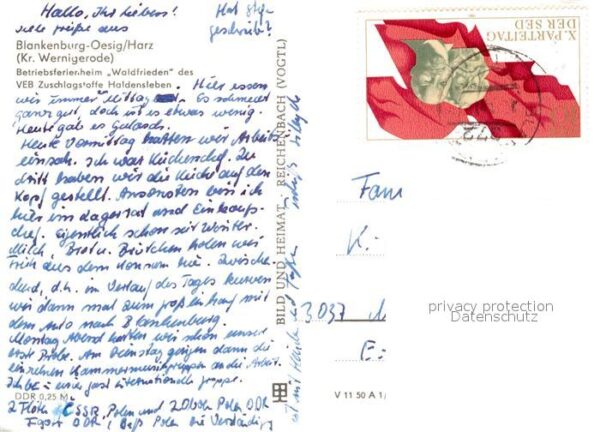 Hallo, Ihr Lieben!
viele Grüße aus
Blankenburg-Oesig/Harz
(Kr. Wernigerode)
Betriebsferienheim „Waldfrieden" des
VEB Zuschlagstoffe Haldensleben.
Hier essen
wir immer Mittag. Es schmeckt
ganz gut, doch ist es etwas wenig.
Heute gab es Gulasch.
Heute Vormittag hatten wir Arbeits-
einsatz. Ich war Küchenchef. Zu
dritt haben wir die Küche auf den
Kopf gestellt. Ansonsten bin ich
hier im Lagerrat und Einkaufs-
chef. Eigentlich schon seit
Milch, Brot u. Brötchen holen wir
früh aus dem Konsum hie. Zwische-
durch, d.h. im Verlauf des Tages kurven
wir dann mal zum großen Einkauf mit
dem Auto nach Blankenburg.
Montag Abend hatten wir schon unsere
erste Probe. Am Dienstag gingen dann die
einzelnen Kammermusikgruppen an die Arbeit.
Ich bin in einer fast internationalen Gruppe.
2 Flöten CSSR, Polen und 2 Oboen Polen, DDR
Fagott DDR, Baß Polen die Verständig
DDR 0,25 M
Hat
geschrieben?
BILD UND HEIMAT REICHENBACH (VOGTL)
mit Händen und Füßen
X. PARTEITAG
DER SED
Fam
K.
3037
E
V 11 50 A 1/
privacy protection
Datenschutz